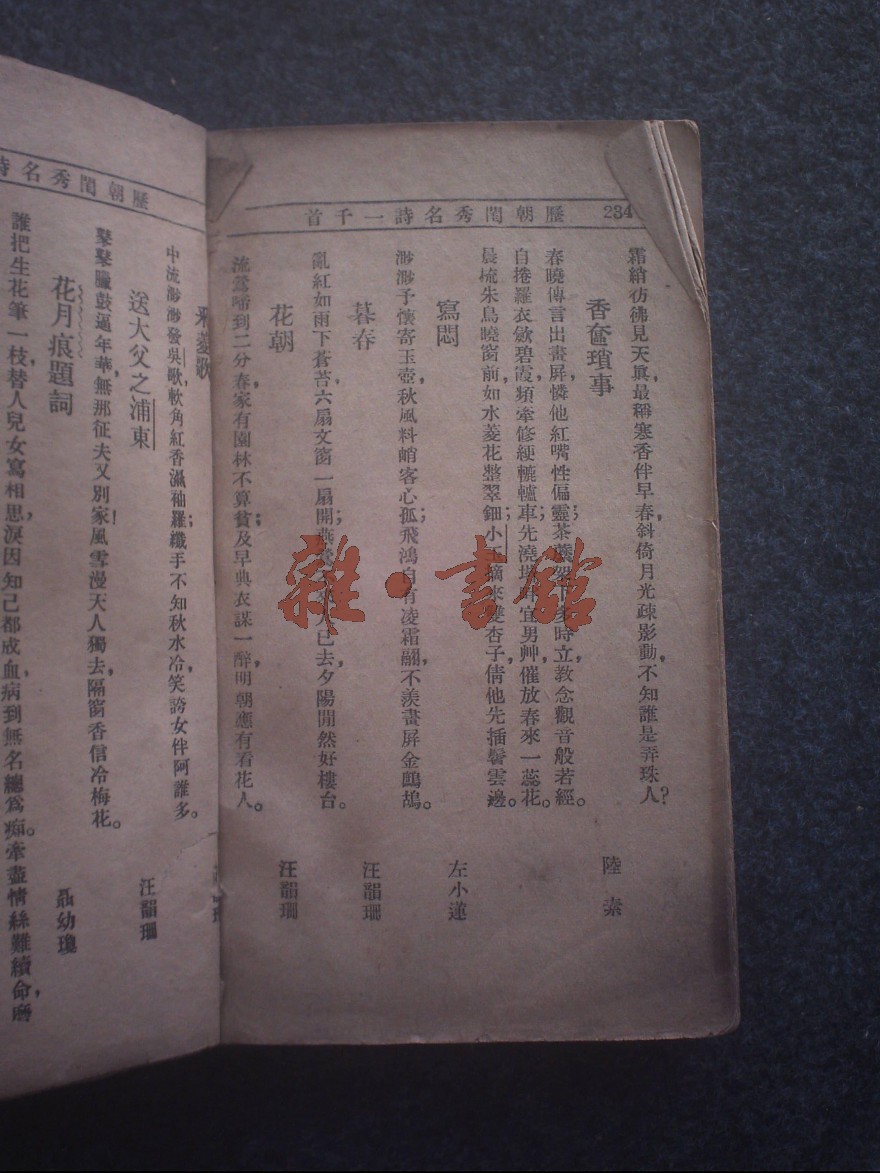 234 歷朝閨秀名詩一千首
霜綃彷彿見天眞，最稱塞香伴早春，斜倚月光疎影動，不知誰是弄珠人？
香奩瑣事
陸素
春曉傳言出畫屏，憐他紅嘴性偏靈；茶架下多時立，敎念觀音般若經。
自捲羅衣斂碧霞，頻牽修綆轆轤車；先澆宜男艸，催放春來一蕊花。
晨梳朱鳥曉窗前，如水菱花整翠鈿；小玉摘來雙杏子，倩他先插鬢雲邊。
寫悶
左小蓮
渺渺予懷寄玉壺，秋風料峭客心孤；飛鴻自有凌霜翮，不羨畫屏金鷓鴣。
暮春
汪韻珊
亂紅如雨下蒼苔，六扇文窗一扇開；燕人已去，夕陽閒然好樓台。
花朝
汪韻珊
流鶯啼到二分春，家有園林不算貧；及早典衣謀一醉，明朝應有看花人。
歷朝閨秀名詩
采菱歌
中流渺渺發吳歌，軟角紅香濕袖羅；纖手不知秋水冷，笑誇女伴阿誰多。
送大父之浦東
汪韻珊
鼕鼕臘鼓逼年華，無那征夫又別家！風雪漫天人獨去，隔窗香信冷梅花。
花月痕題詞
聶幼瓊
誰把生花筆一枝，替人兒女寫相思，淚因知己都成血，病到無名總爲痴。牽盡情絲難續命，